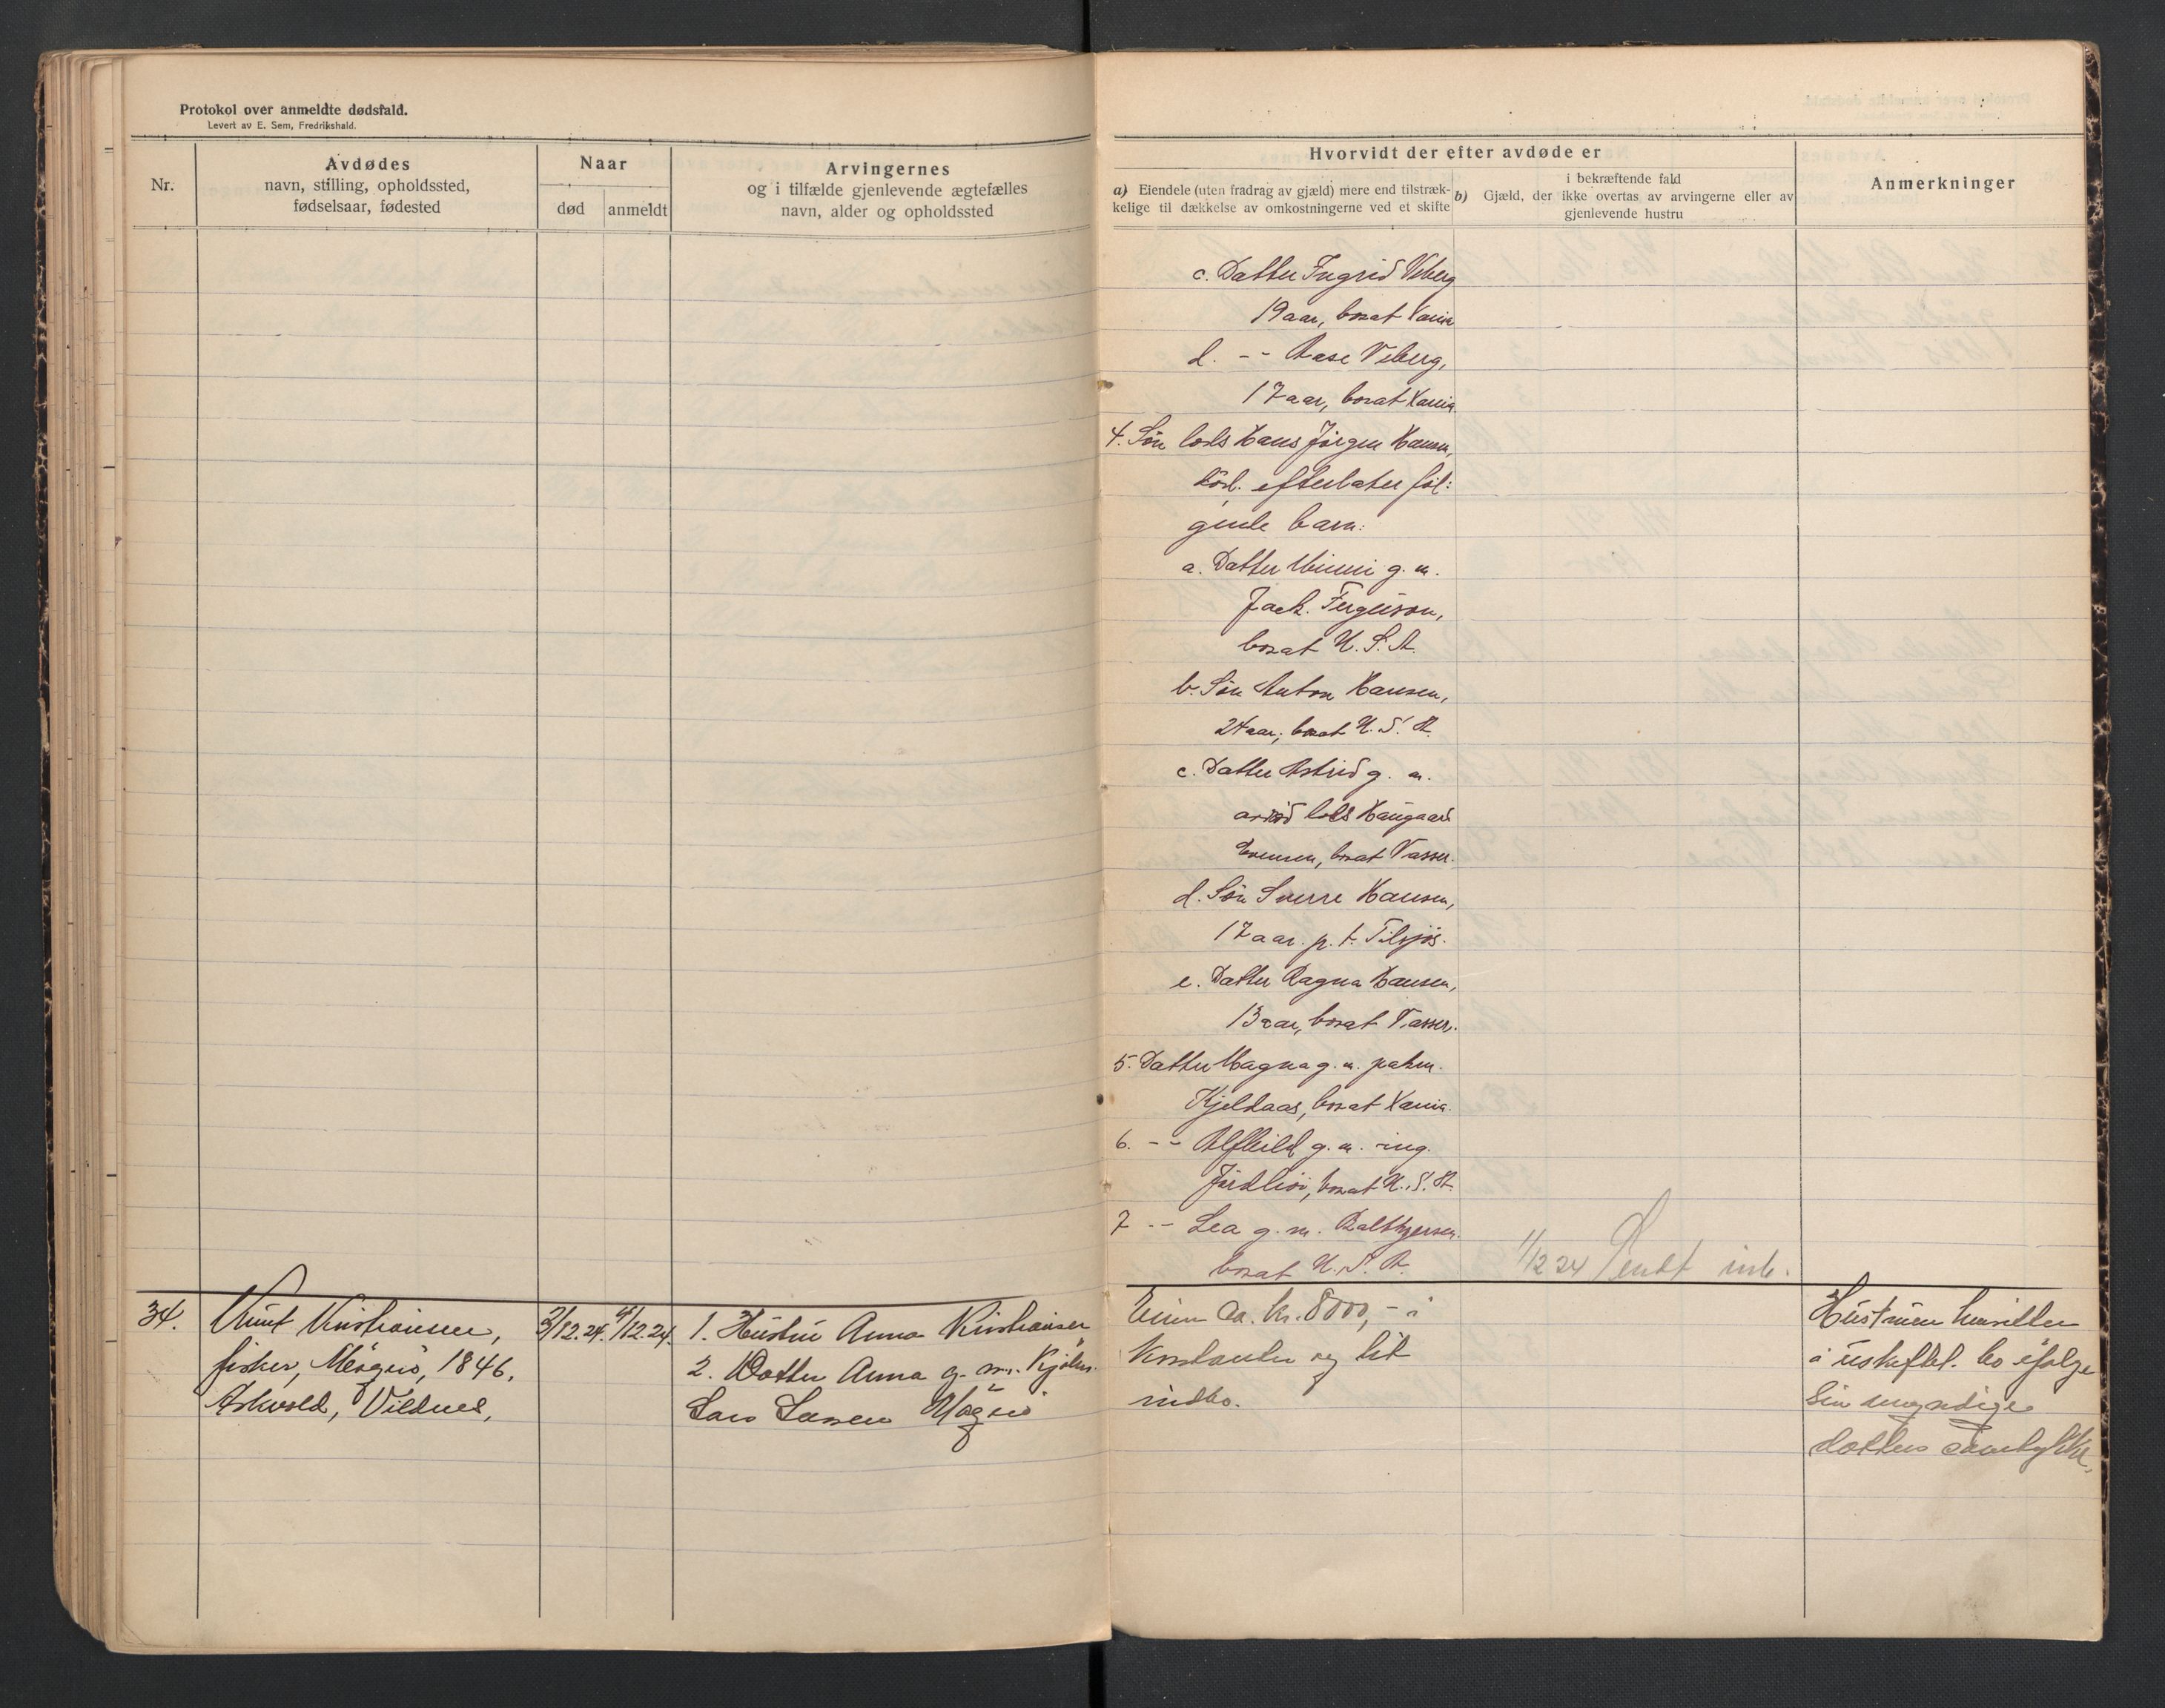 Protokol over anmeldte dødsfald.
Levert av E. Sem, Fredrikshald.
Nr.
Avdødes
navn, stilling, opholdssted,
fødselsaar, fødested
Naar
død
anmeldt
Arvingernes
og i tilfælde gjenlevende ægtefælles
navn, alder og opholdssted
34.
Knut Kristiansen,
fisker, Magerø, 1846,
Askvold, Vildnes,
3/12.24.
4/12.24.
1. Hustru Anna Kristiansen
2. Datter Anna g. m.
Lars Larsen Magerø
Hvorvidt der efter avdøde er
a) Eiendele (uten fradrag av gjæld) mere end tilstræk-
kelige til dækkelse av omkostningerne ved et skifte
i bekræftende fald
b) Gjæld, der ikke overtas av arvingerne eller av
gjenlevende hustru
Anmerkninger
c. Datter Ingrid Viberg
19 aar, bosat Kania
d. -- Aase Viberg,
17 aar, bosat Kania.
4. Søn lods Hans Jørgen Hansen,
død. efterlater føl:
gende barn:
a. Datter Minni g. m.
Jack. Ferguson,
bosat U. S. A.
b. Søn Anton Hansen,
24 aar, bosat U. S. A.
c. Datter Astrid g. m.
lods Haugaard
Evensen, bosat Vasser.
d. Søn Sverre Hansen,
17 aar. p. t. Tilsjøs.
e. Datter Ragna Hansen,
13 aar, bosat Vasser.
5. Datter Magna g. m.
Kjeldaas, bosat Kania.
6. -- Alfhild g. m. ing.
bosat U. S. A.
7 -- Lea g. m.
bosat U. S. A.
1/12 24 Sendt
Eien ca. kr. 8000,- i
kontanter og litt
indbo.
Hustruen hensitter
i uskiftet. bo ifølge
sin myndige
datters samtykke.